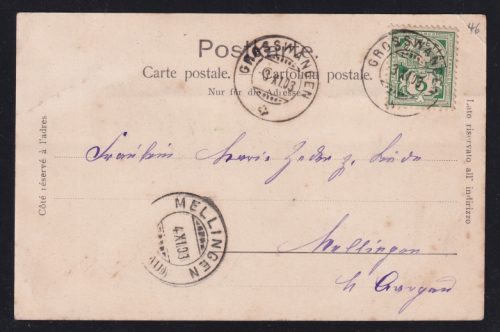 46
Postkarte.
Carte postale. Cartolina postale.
Nur für die Adresse.
GROSSWANGEN
XI.03
GROSSWAN
Côté réservé à l'adres
Lato riservato all' indirizzo
Fräulein Marie Zeder z. Linde
MELLINGEN
4.XI.03
Mellingen
Aargau